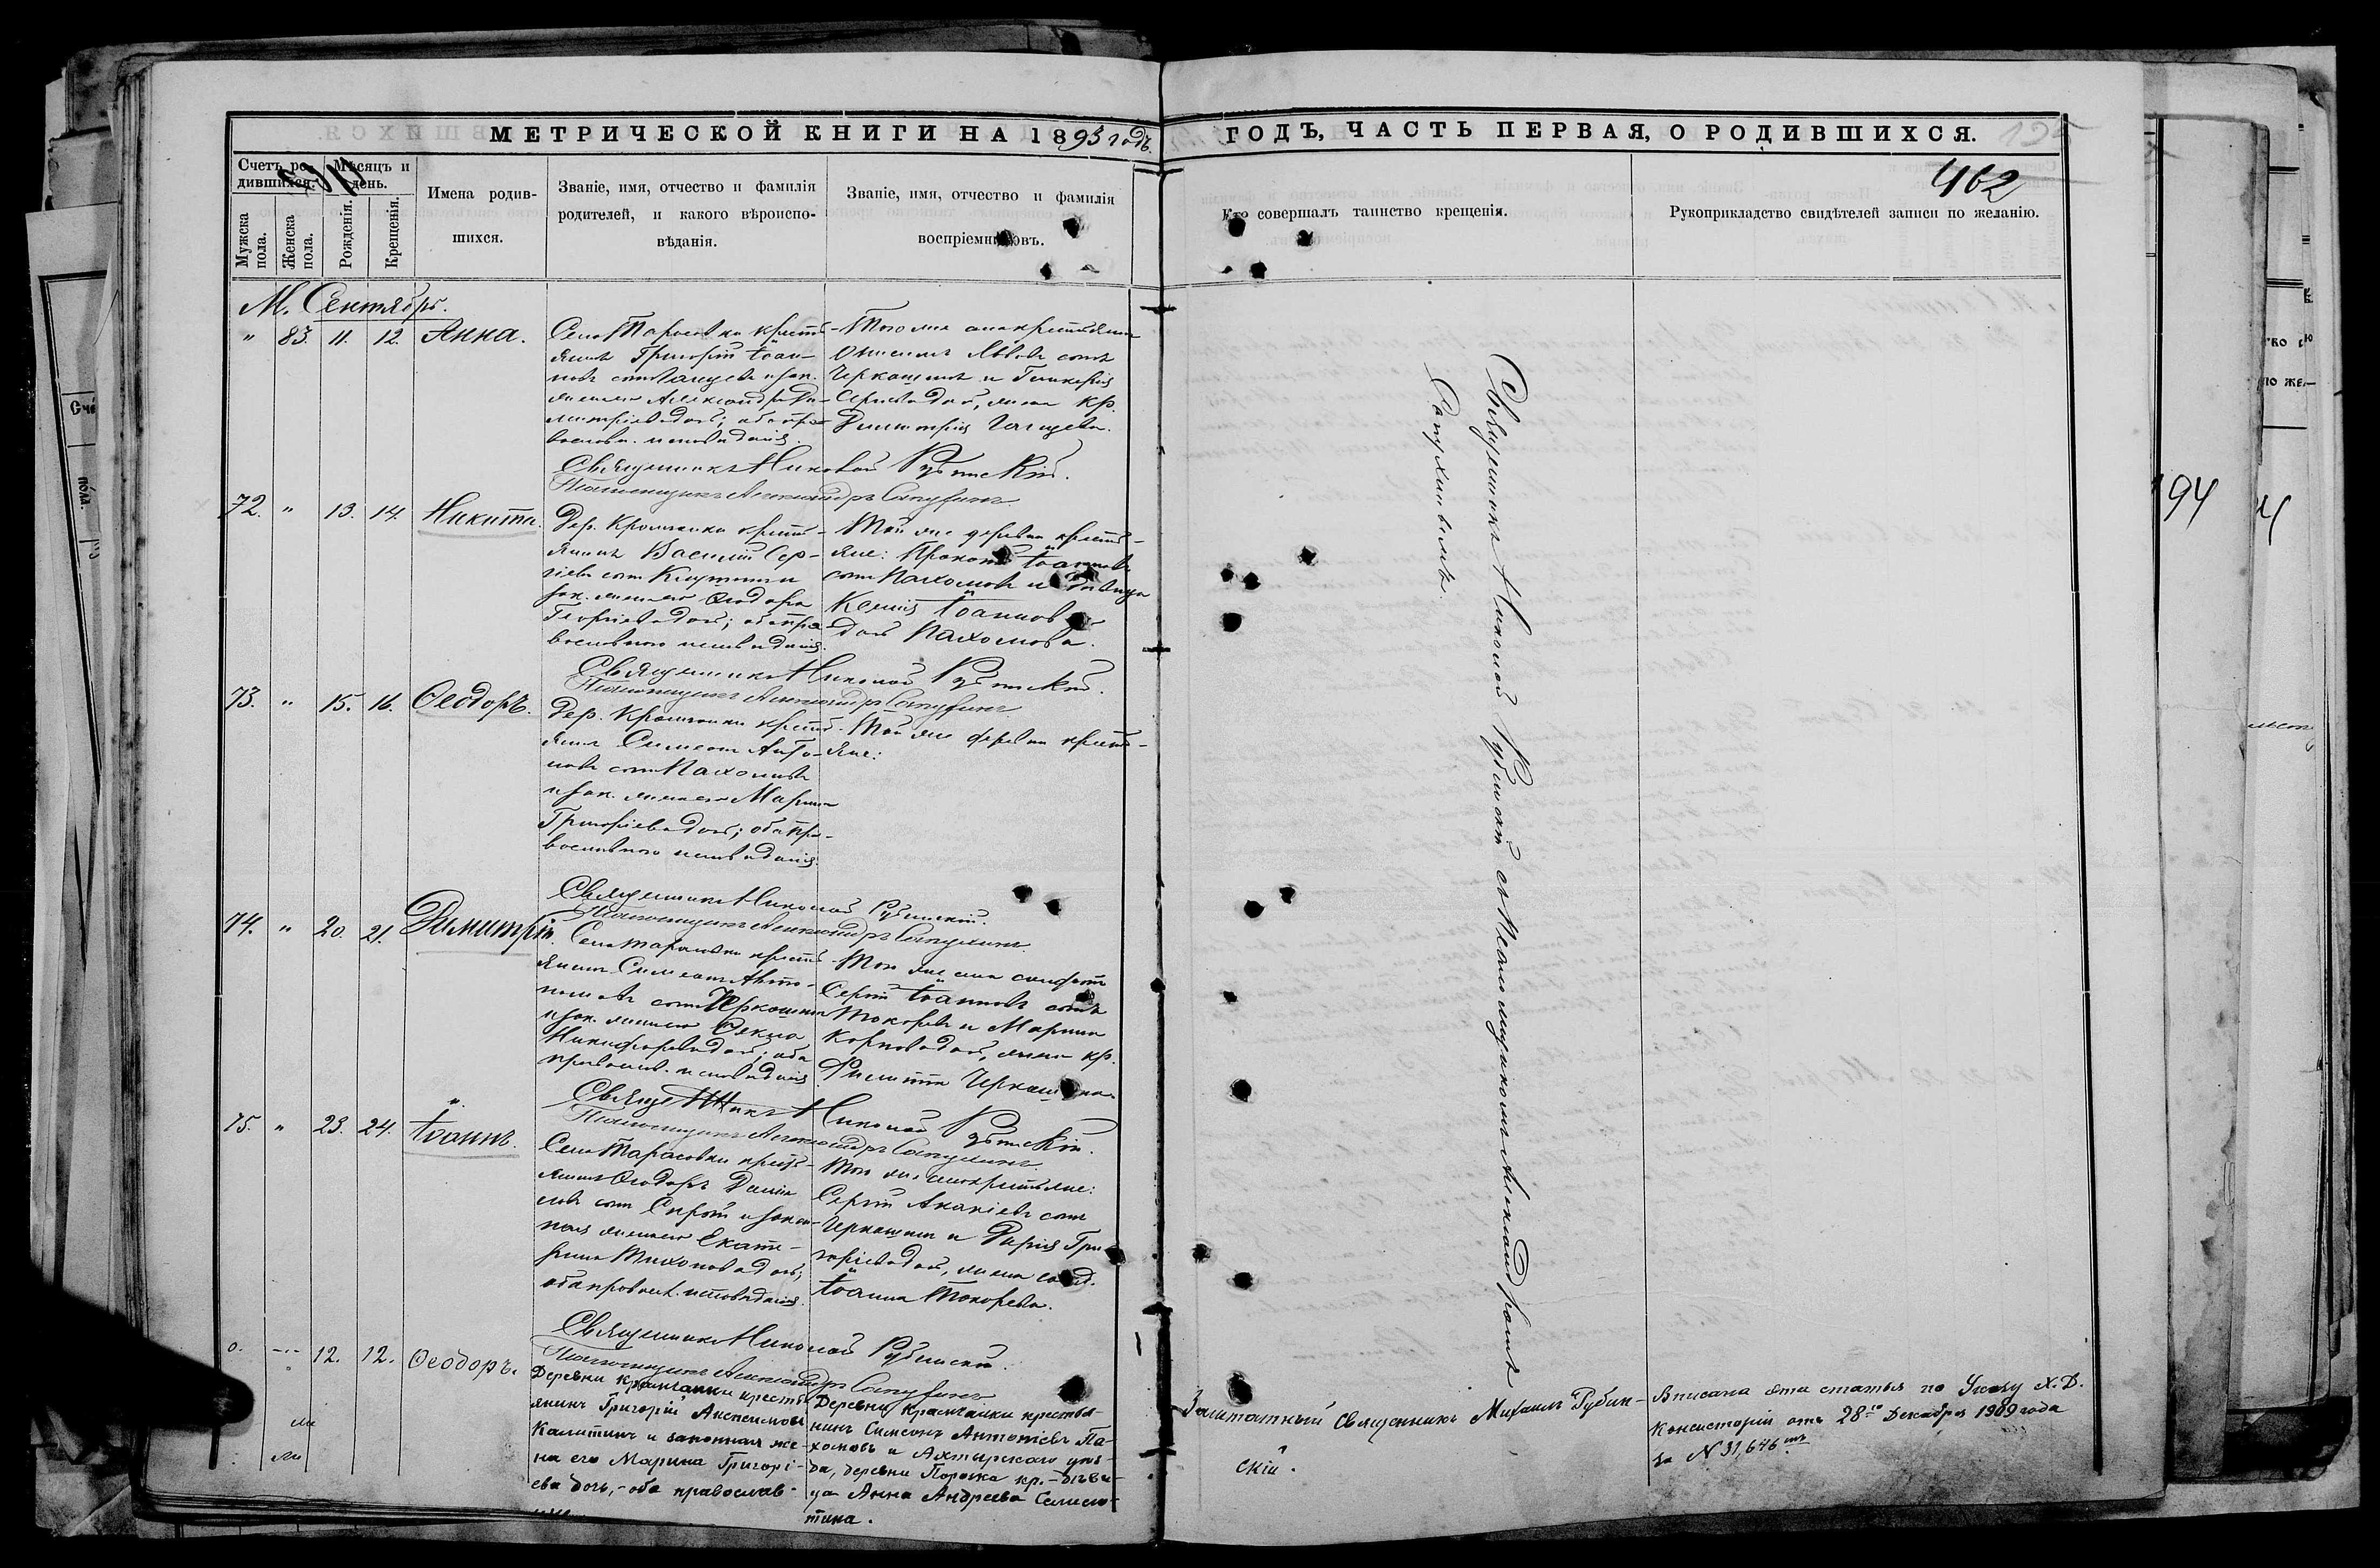 МЕТРИЧЕСКОЙ КНИГИ НА 1893 годъ.
ГОДЪ, ЧАСТЬ ПЕРВАЯ, О РОДИВШИХСЯ.
462
Счетъ родившихся.
Мѣсяцъ и день.
Мужска пола.
Женска пола.
Рожденія.
Крещенія.
Имена родив-
шихся.
Званіе, имя, отчество и фамилія
родителей, и какого вѣроиспо-
вѣданія.
Званіе, имя, отчество и фамилія
воспріемниковъ.
Кто совершалъ таинство крещенія.
Рукоприкладство свидѣтелей записи по желанію.
М. Сентябрь.
" 83. 11. 12. Анна.
Села Тарасовки кресть-
янинъ Григорій Іоан-
новъ сынъ и зак.
жена его Александра Ди-
митріева дочь; оба пра-
вославн. исповѣданія.
Того же села крестьяне
Онисимъ Львовъ сынъ
Черкашинъ и Гликерія
Сергіева дочь, жена кр.
Димитрія
Священникъ Николай Рубинскій.
Псаломщикъ Александръ Сапухинъ.
72. " 13. 14. Никита.
Дер. Крамчанки кресть-
янинъ Василій Сер-
гіевъ сынъ
зак. жена его Ѳеодора
Георгіева дочь; оба пра-
вославного исповѣданія.
Той же деревни кресть-
яне: Прокопій Іоанновъ
сынъ Пахомовъ и дѣвица
Ксенія Іоаннов
дочь Пахомова.
Священникъ Николай Рубинскій.
Псаломщикъ Александръ Сапухинъ.
73. " 15. 16. Ѳеодоръ.
Дер. Крамчанки кресть-
янинъ Симеонъ Анто-
новъ сынъ Пахомовъ
и зак. жена его Марина
Григоріева дочь; оба пра-
вославного исповѣданія.
Той же деревни кресть-
яне:
Священникъ Николай Рубинскій.
Псаломщикъ Александръ Сапухинъ.
74. " 20. 21. Димитрій.
Села Тарасовки кресть-
янинъ Симеонъ Авто-
номовъ сынъ Черкашинъ
и зак. жена его Ѳекла
Никифорова дочь; оба
православ. исповѣданія.
Того же села
Сергій Іоанновъ сынъ
Токоревъ и Марина
Карпова дочь, жена кр.
Филиппа Черкашина.
Священникъ Николай Рубинскій.
Псаломщикъ Александръ Сапухинъ.
75. " 23. 24. Іоаннъ.
Села Тарасовки кресть-
янинъ Ѳеодоръ Дани
ловъ сынъ и закон-
ная жена его Екате-
рина Тихонова дочь;
оба православ. исповѣданія.
Того же села крестьяне:
Сергій Акакіевъ сынъ
Черкашинъ и Дарія Гри-
горіева дочь, жена солд.
Іоанна Токорева.
Священникъ Николай Рубинскій.
Псаломщикъ Александръ Сапухинъ.
0. 12. 12. Ѳеодоръ.
Деревни Крамчанки кресть-
янинъ Григорій
Калитинъ и законная же-
на его Марина Григорі-
ева дочь, - оба православ-
Деревни Крамчанки крестья-
нинъ Симеонъ Антоніевъ Па-
хомовъ и Ахтырскаго уѣз-
да, деревни кр. - дѣви-
ца Анна Андреева
Священникъ Николай Рубинскій съ псаломщикомъ Александромъ
Сапухинымъ.
Заштатный священникъ Михаилъ Рубин-
скій.
Вписана эта статья по Указу Х. Д.
Консисторіи отъ 28го Декабря 1909 года
за № 31,646мъ
194
4